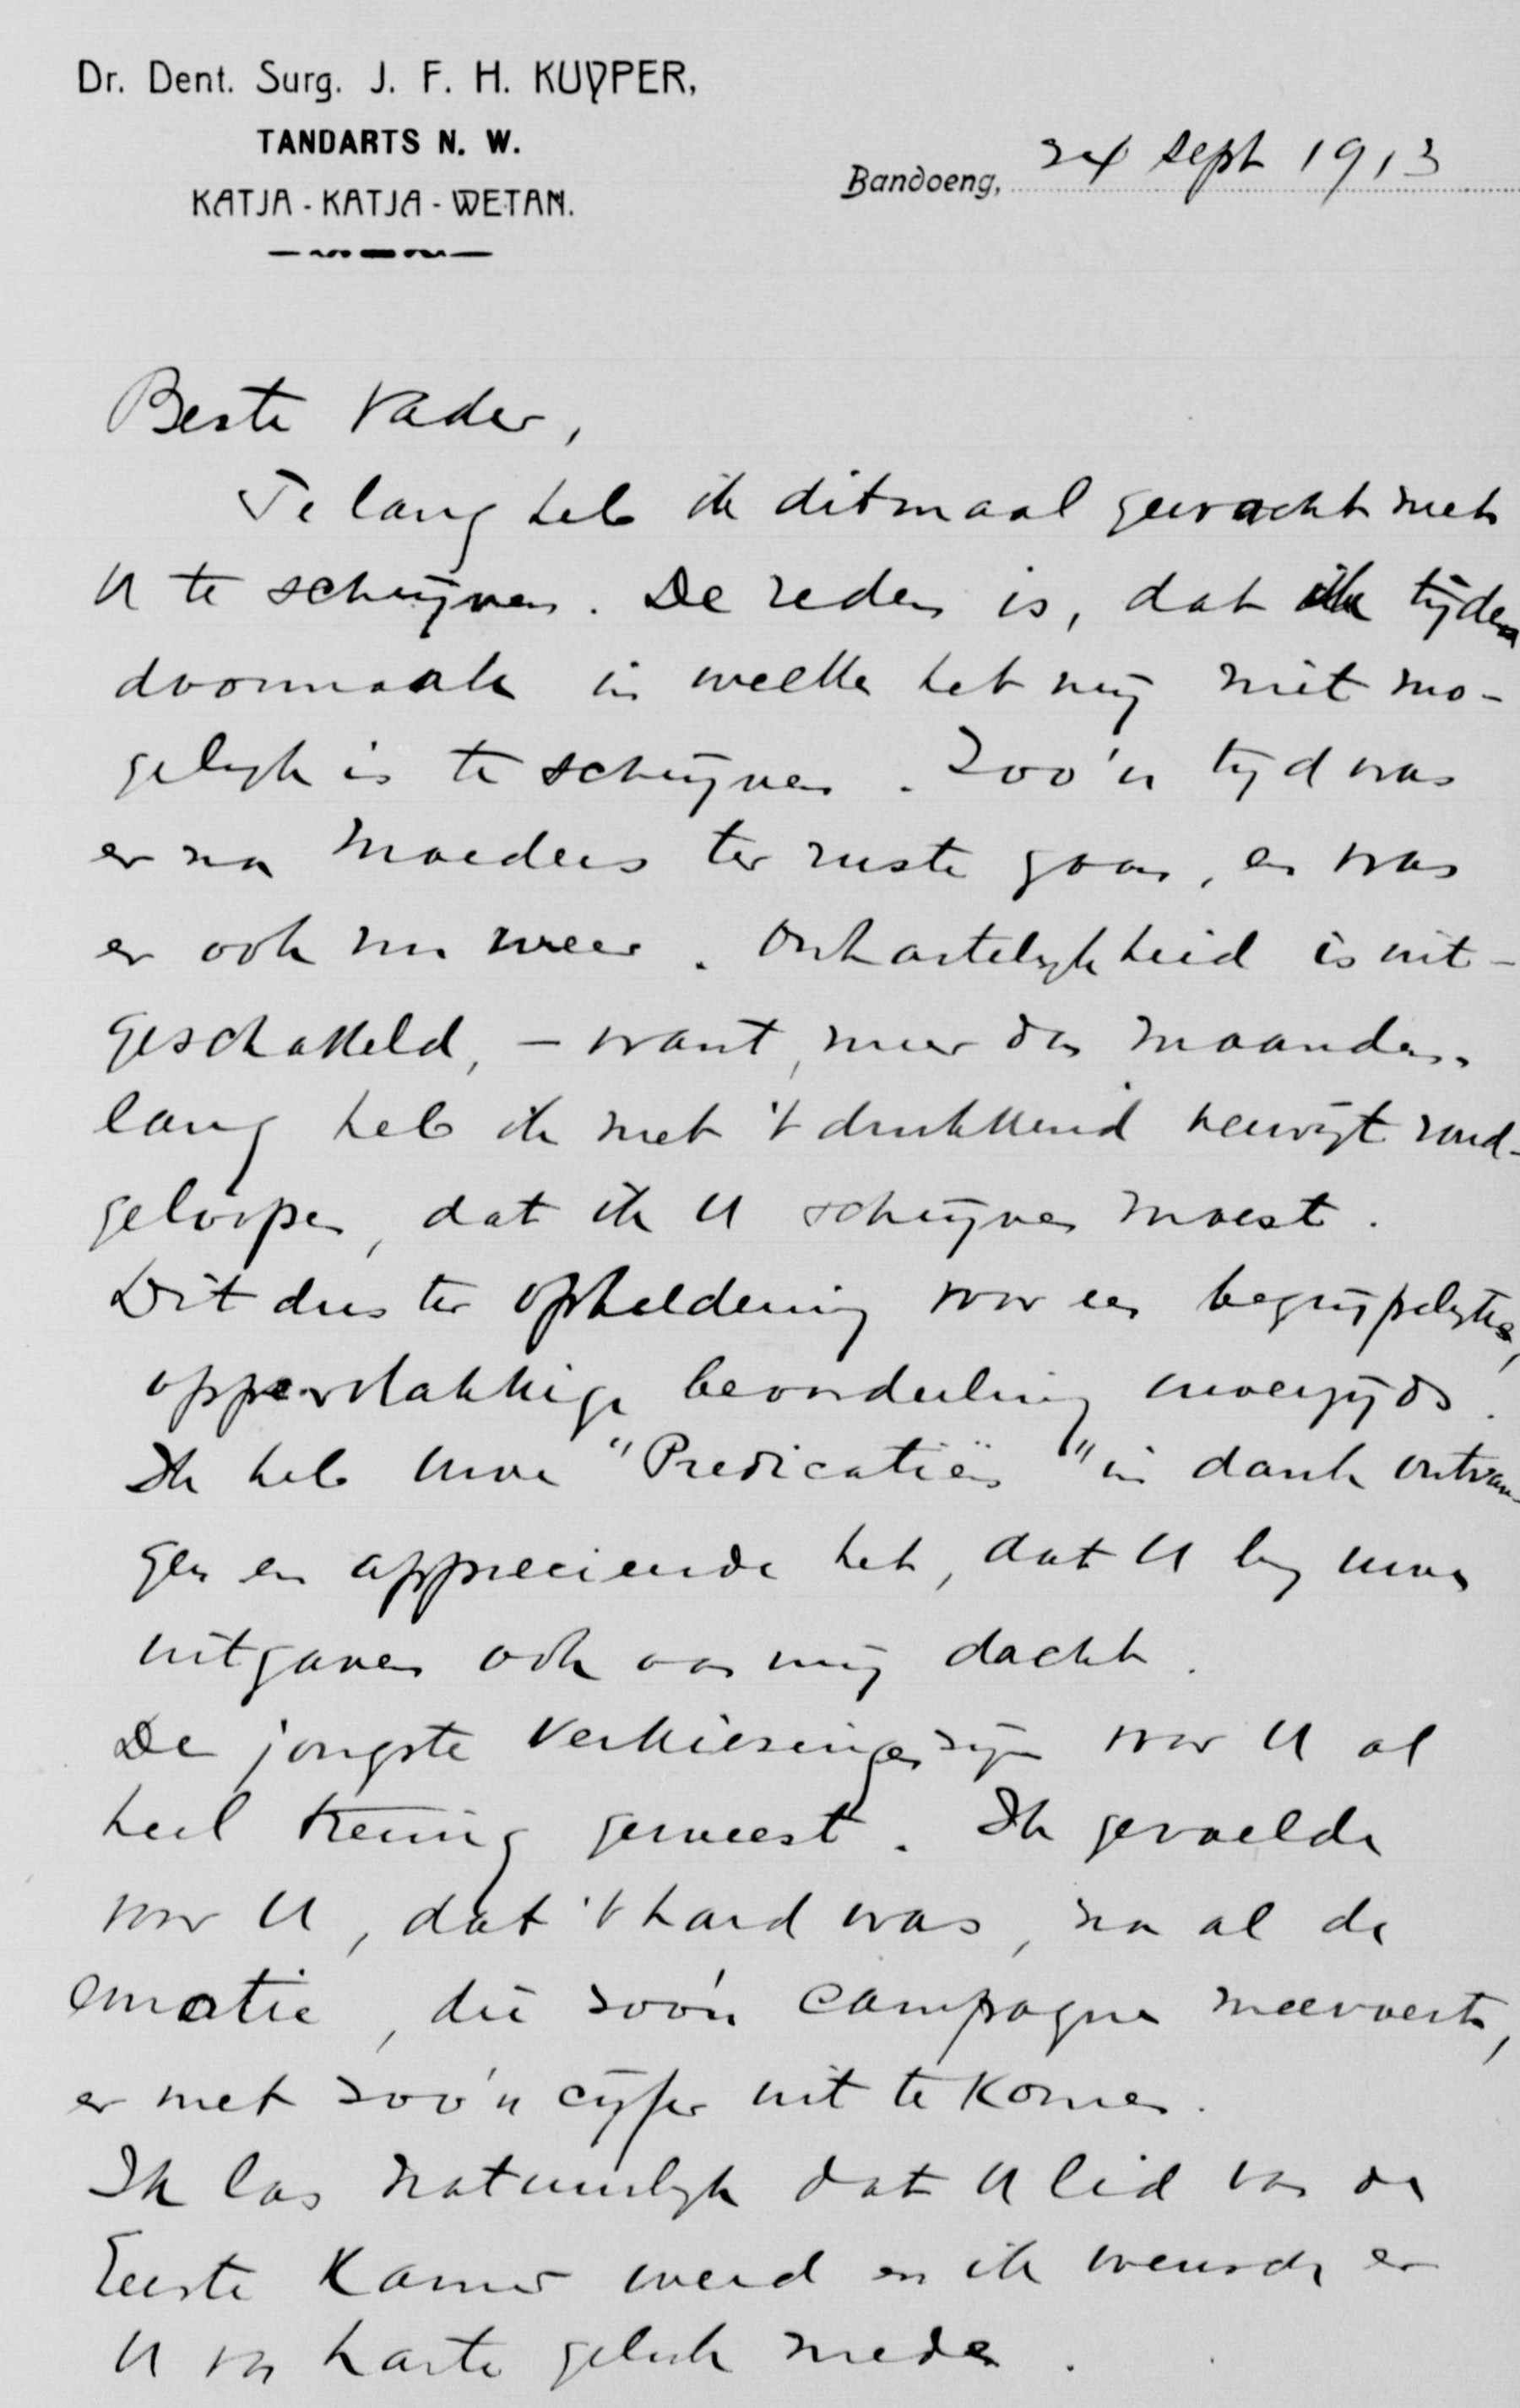 Dr. Dent. Surg. J. F. H. KUYPER,
TANDARTS N. W.
KATJA - KATJA - WETAN.
Bandoeng, 24 Sept 1913
Beste Vader,
Te lang heb ik ditmaal gewacht met
U te schrijven. De reden is, dat ik tijden
doormaak in welke het mij niet mo-
gelijk is te schrijven. Zoo'n tijd was
er na Moeders ter ruste gaan, en was
er ook nu weer. Onhartelijkheid is uit-
geschakeld, - want, meer dan maanden-
lang heb ik met 't drukkend verwijt rond-
geloopen, dat ik U schrijven moest.
Dit dus ter opheldering voor een begrijpelijke,
oppervlakkige beoordeeling uwerzijds.
Ik heb uwe "Predicatiën" in dank ontvan-
gen en apprecieerde het, dat U bij uwe
uitgaven ook aan mij dacht.
De jongste verkiezingen zijn voor U al
heel treurig geweest. Ik gevoelde
voor U, dat 't hard was, na al de
emotie, die zoo'n campagne meevoert,
er met zoo'n cijfer uit te komen.
Ik las natuurlijk dat U lid van de
Eerste Kamer werd en ik wensch er
U van harte geluk mede.